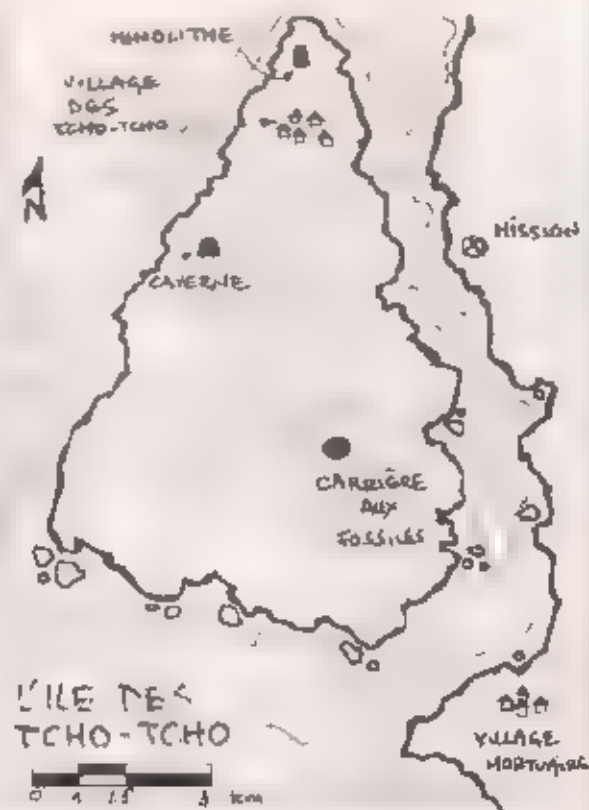 MONOLITHE
VILLAGE
DES
TCHO-TCHO
N
MISSION
CAVERNE
CARRIÈRE
AUX
FOSSILES
L'ILE DES
TCHO-TCHO
VILLAGE
MORTUAIRE
0 1 km